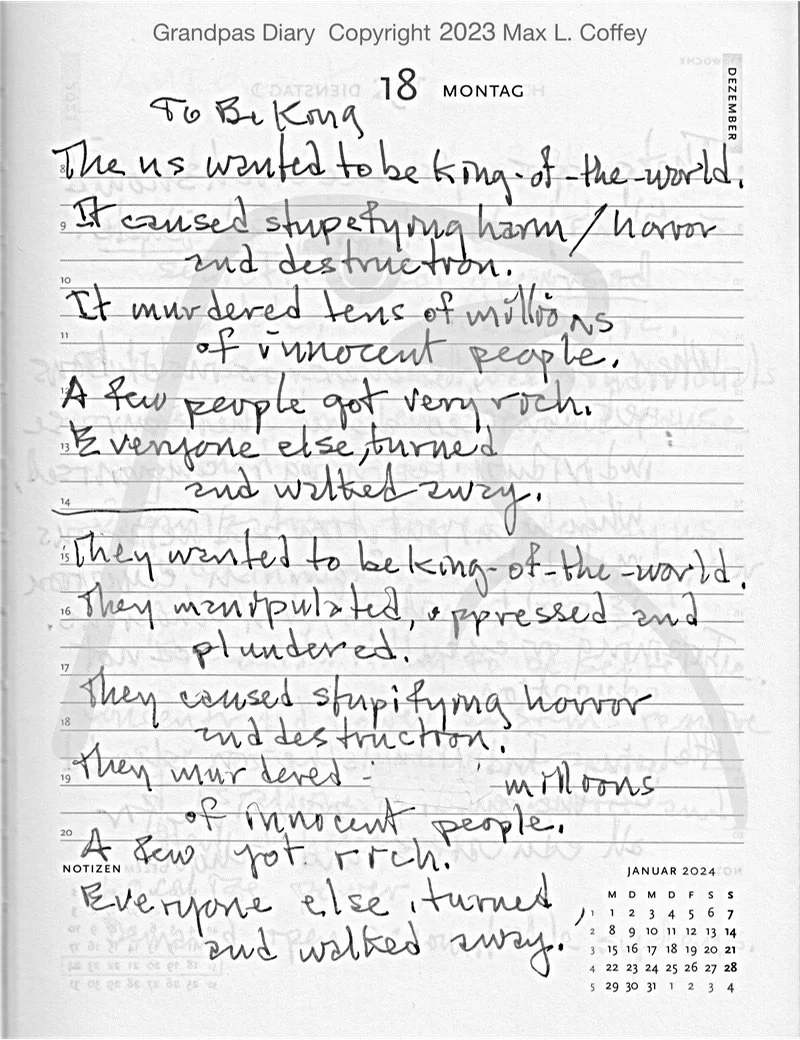 Grandpas Diary Copyright 2023 Max L. Coffey
18 MONTAG
DEZEMBER
To Be King
The us wanted to be king-of-the-world.
8
9 It caused stupefying harm/horror
and destruction.
10
It murdered tens of millions
11
of innocent people.
12
A few people got very rich.
13 Everyone else, turned
and walked away.
14
15 They wanted to be king-of-the-world.
16 They manipulated, oppressed and
plundered.
17
They caused stupifying horror
18
and destruction.
19 They murdered millions
of innocent people.
20
A few got rich.
NOTIZEN
Everyone else, turned
and walked away.
JANUAR 2024
M D M D F S S
1 1 2 3 4 5 6 7
2 8 9 10 11 12 13 14
3 15 16 17 18 19 20 21
4 22 23 24 25 26 27 28
5 29 30 31 1 2 3 4